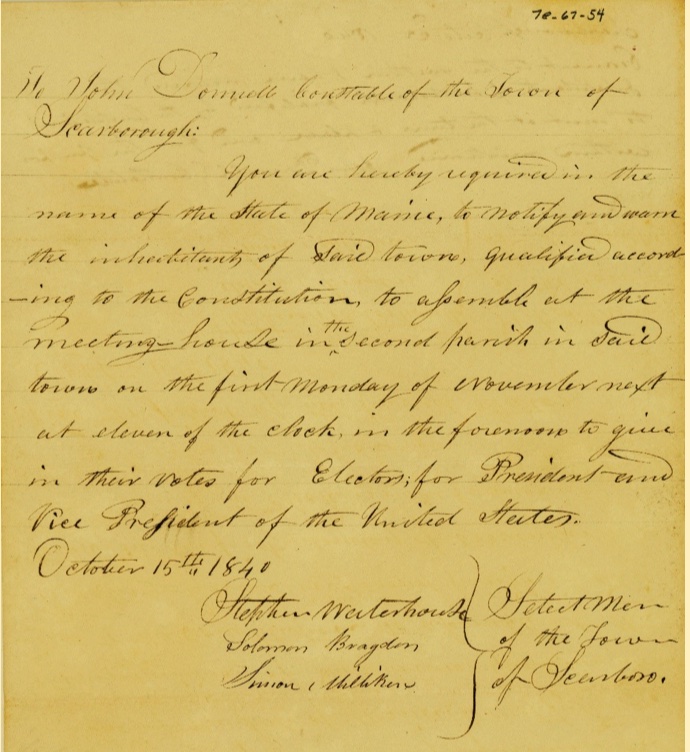 78-67-54
To John Donnell Constable of the Town of
Scarborough:
You are hereby required in the
name of the State of Maine, to notify and warn
the inhabitants of said town, qualified accord-
-ing to the Constitution, to assemble at the
meeting-house in the second parish in said
town on the first Monday of November next
at eleven of the clock, in the forenoon to give
in their votes for Electors, for President and
Vice President of the United States.
October 15th 1840
Stephen Waterhouse
Solomon Bragdon
Simon Milliken
Select Men
of the Town
of Scarboro.